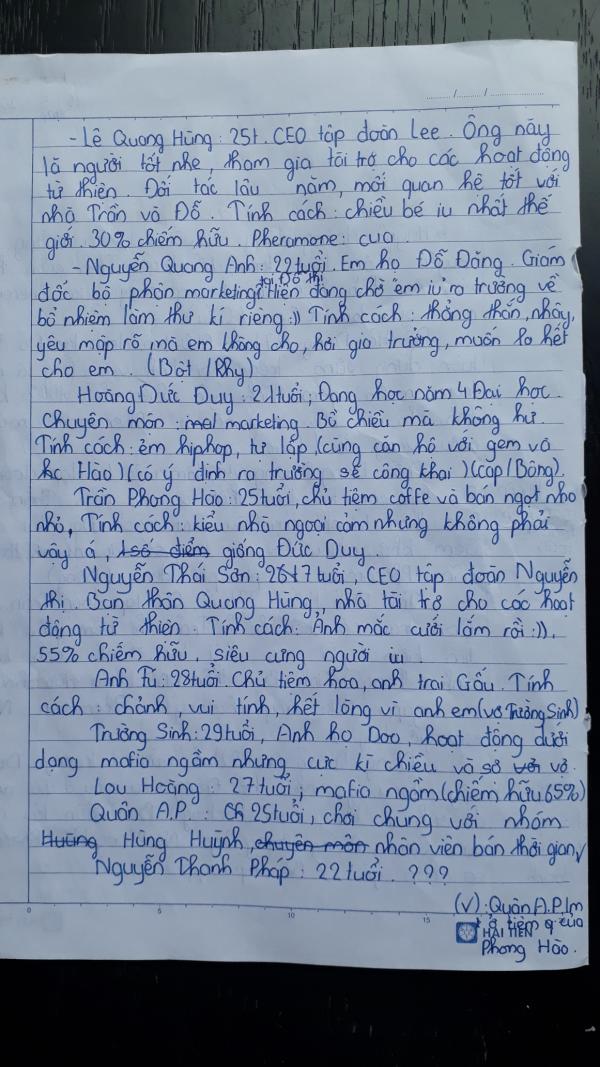 ....../....../..........
- Lê Quang Hùng : 25t. CEO tập đoàn Lee. Ông này
là người tốt nhe, tham gia tài trợ cho các hoạt động
từ thiện. Đối tác lâu năm, mối quan hệ tốt với
nhà Trần và Đỗ. Tính cách : chiều bé iu nhất thế
giới. 30% chiếm hữu. Pheromone : cua.
- Nguyễn Quang Anh : 22 tuổi. Em họ Đỗ Đăng. Giám
đốc bộ phận marketing tại Đỗ thị. Hiện đang chờ em iu ra trường về
bổ nhiệm làm thư kí riêng :)) Tính cách : thẳng thắn, nhây,
yêu mập rõ mà em không cho, hơi gia trưởng, muốn lo hết
cho em. (Bột / Rhy)
Hoàng Đức Duy : 21 tuổi, Đang học năm 4 Đại học.
Chuyên môn : marketing. Bồ chiều mà không hư.
Tính cách : ẻm hiphop, tự lập, (cùng căn hộ với gem và
Hào) (có ý định ra trường sẽ công khai) (cap / Bông).
Trần Phong Hào : 25 tuổi, chủ tiệm coffe và bán ngọt nho
nhỏ, Tính cách : kiểu nhà ngoại cảm nhưng không phải
vậy á, 1 số điểm giống Đức Duy.
Nguyễn Thái Sơn : 26+7 tuổi, CEO tập đoàn Nguyễn
thị. Bạn thân Quang Hùng, nhà tài trợ cho các hoạt
động từ thiện. Tính cách : Ảnh mắc cưới lắm rồi :)).
55% chiếm hữu, siêu cưng người iu.
Anh Tú : 28 tuổi Chủ tiệm hoa, anh trai Gấu. Tính
cách : chảnh, vui tính, hết lòng vì anh em (vợ Trường Sinh)
Trường Sinh : 29 tuổi, Anh họ Doo, hoạt động dưới
dạng mafia ngầm nhưng cực kì chiều và sợ vợ.
Lou Hoàng : 27 tuổi, mafia ngầm (chiếm hữu 65%)
Quân A.P. : 25 tuổi, chơi chung với nhóm
Hùng Huỳnh, chuyên môn nhân viên bán thời gian, v
Nguyễn Thanh Pháp : 22 tuổi. ???
(v) : Quân A.P lm
ở tiệm của
Phong Hào.
HẢI TIẾN
0 5 10 15